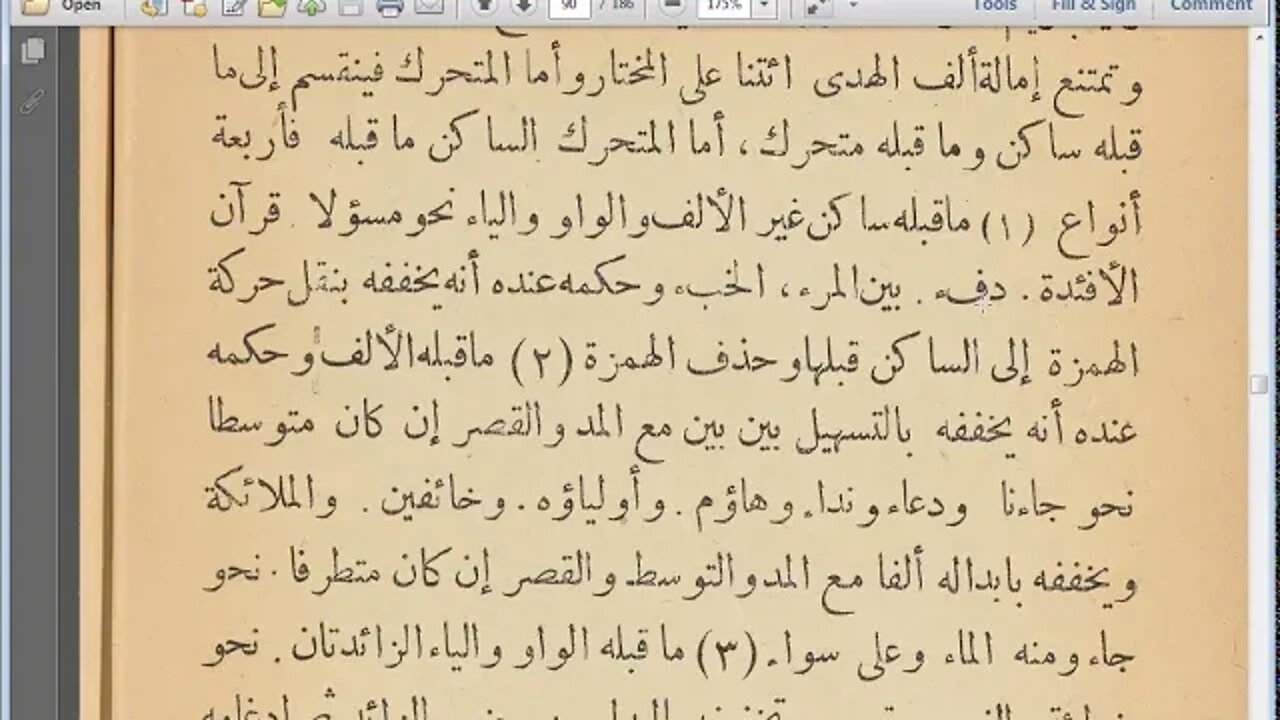 Open 90 / 186 175% Tools Fill & Sign Comment
وتمتنع إمالة ألف الهدى ائتنا على المختار وأما المتحرك فينقسم إلى ما
قبله ساكن وما قبله متحرك، أما المتحرك الساكن ما قبله فأربعة
أنواع (١) ما قبله ساكن غير الألف والواو والياء نحو مسؤلا . قرآن
الأفئدة . دفء . بين المرء، الخبء وحكمه عنده أنه يخففه بنقل حركة
الهمزة إلى الساكن قبلها وحذف الهمزة (٢) ما قبله الألف وحكمه
عنده أنه يخففه بالتسهيل بين بين مع المد والقصر إن كان متوسطا
نحو جاءنا ودعاء ونداء وهاؤم . وأولياؤه . وخائفين . والملائكة
ويخففه بابداله ألفا مع المد والتوسط والقصر إن كان متطرفا . نحو
جاء ومنه الماء وعلى سواء (٣) ما قبله الواو والياء الزائدتان . نحو